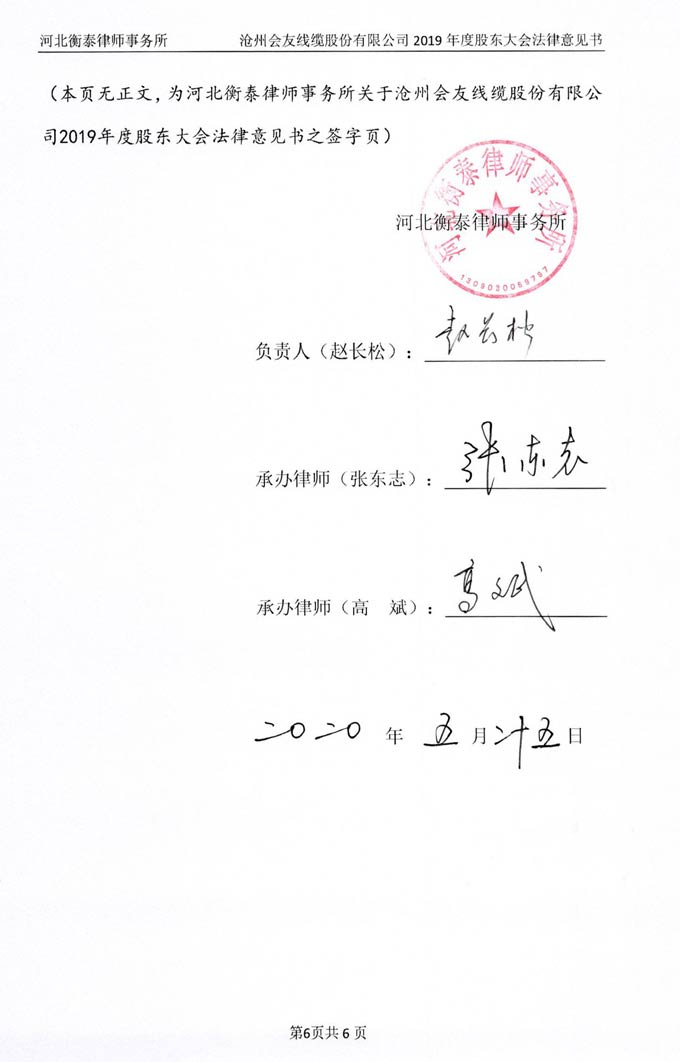 河北衡泰律师事务所 沧州会友线缆股份有限公司 2019 年度股东大会法律意见书
（本页无正文，为河北衡泰律师事务所关于沧州会友线缆股份有限公
司2019年度股东大会法律意见书之签字页）
河北衡泰律师事务所
河北衡泰律师事务所
1309030069797
负责人（赵长松）：赵长松
承办律师（张东志）：张东志
承办律师（高 斌）：高斌
二〇二〇 年 五 月 二十五 日
第6页共 6 页